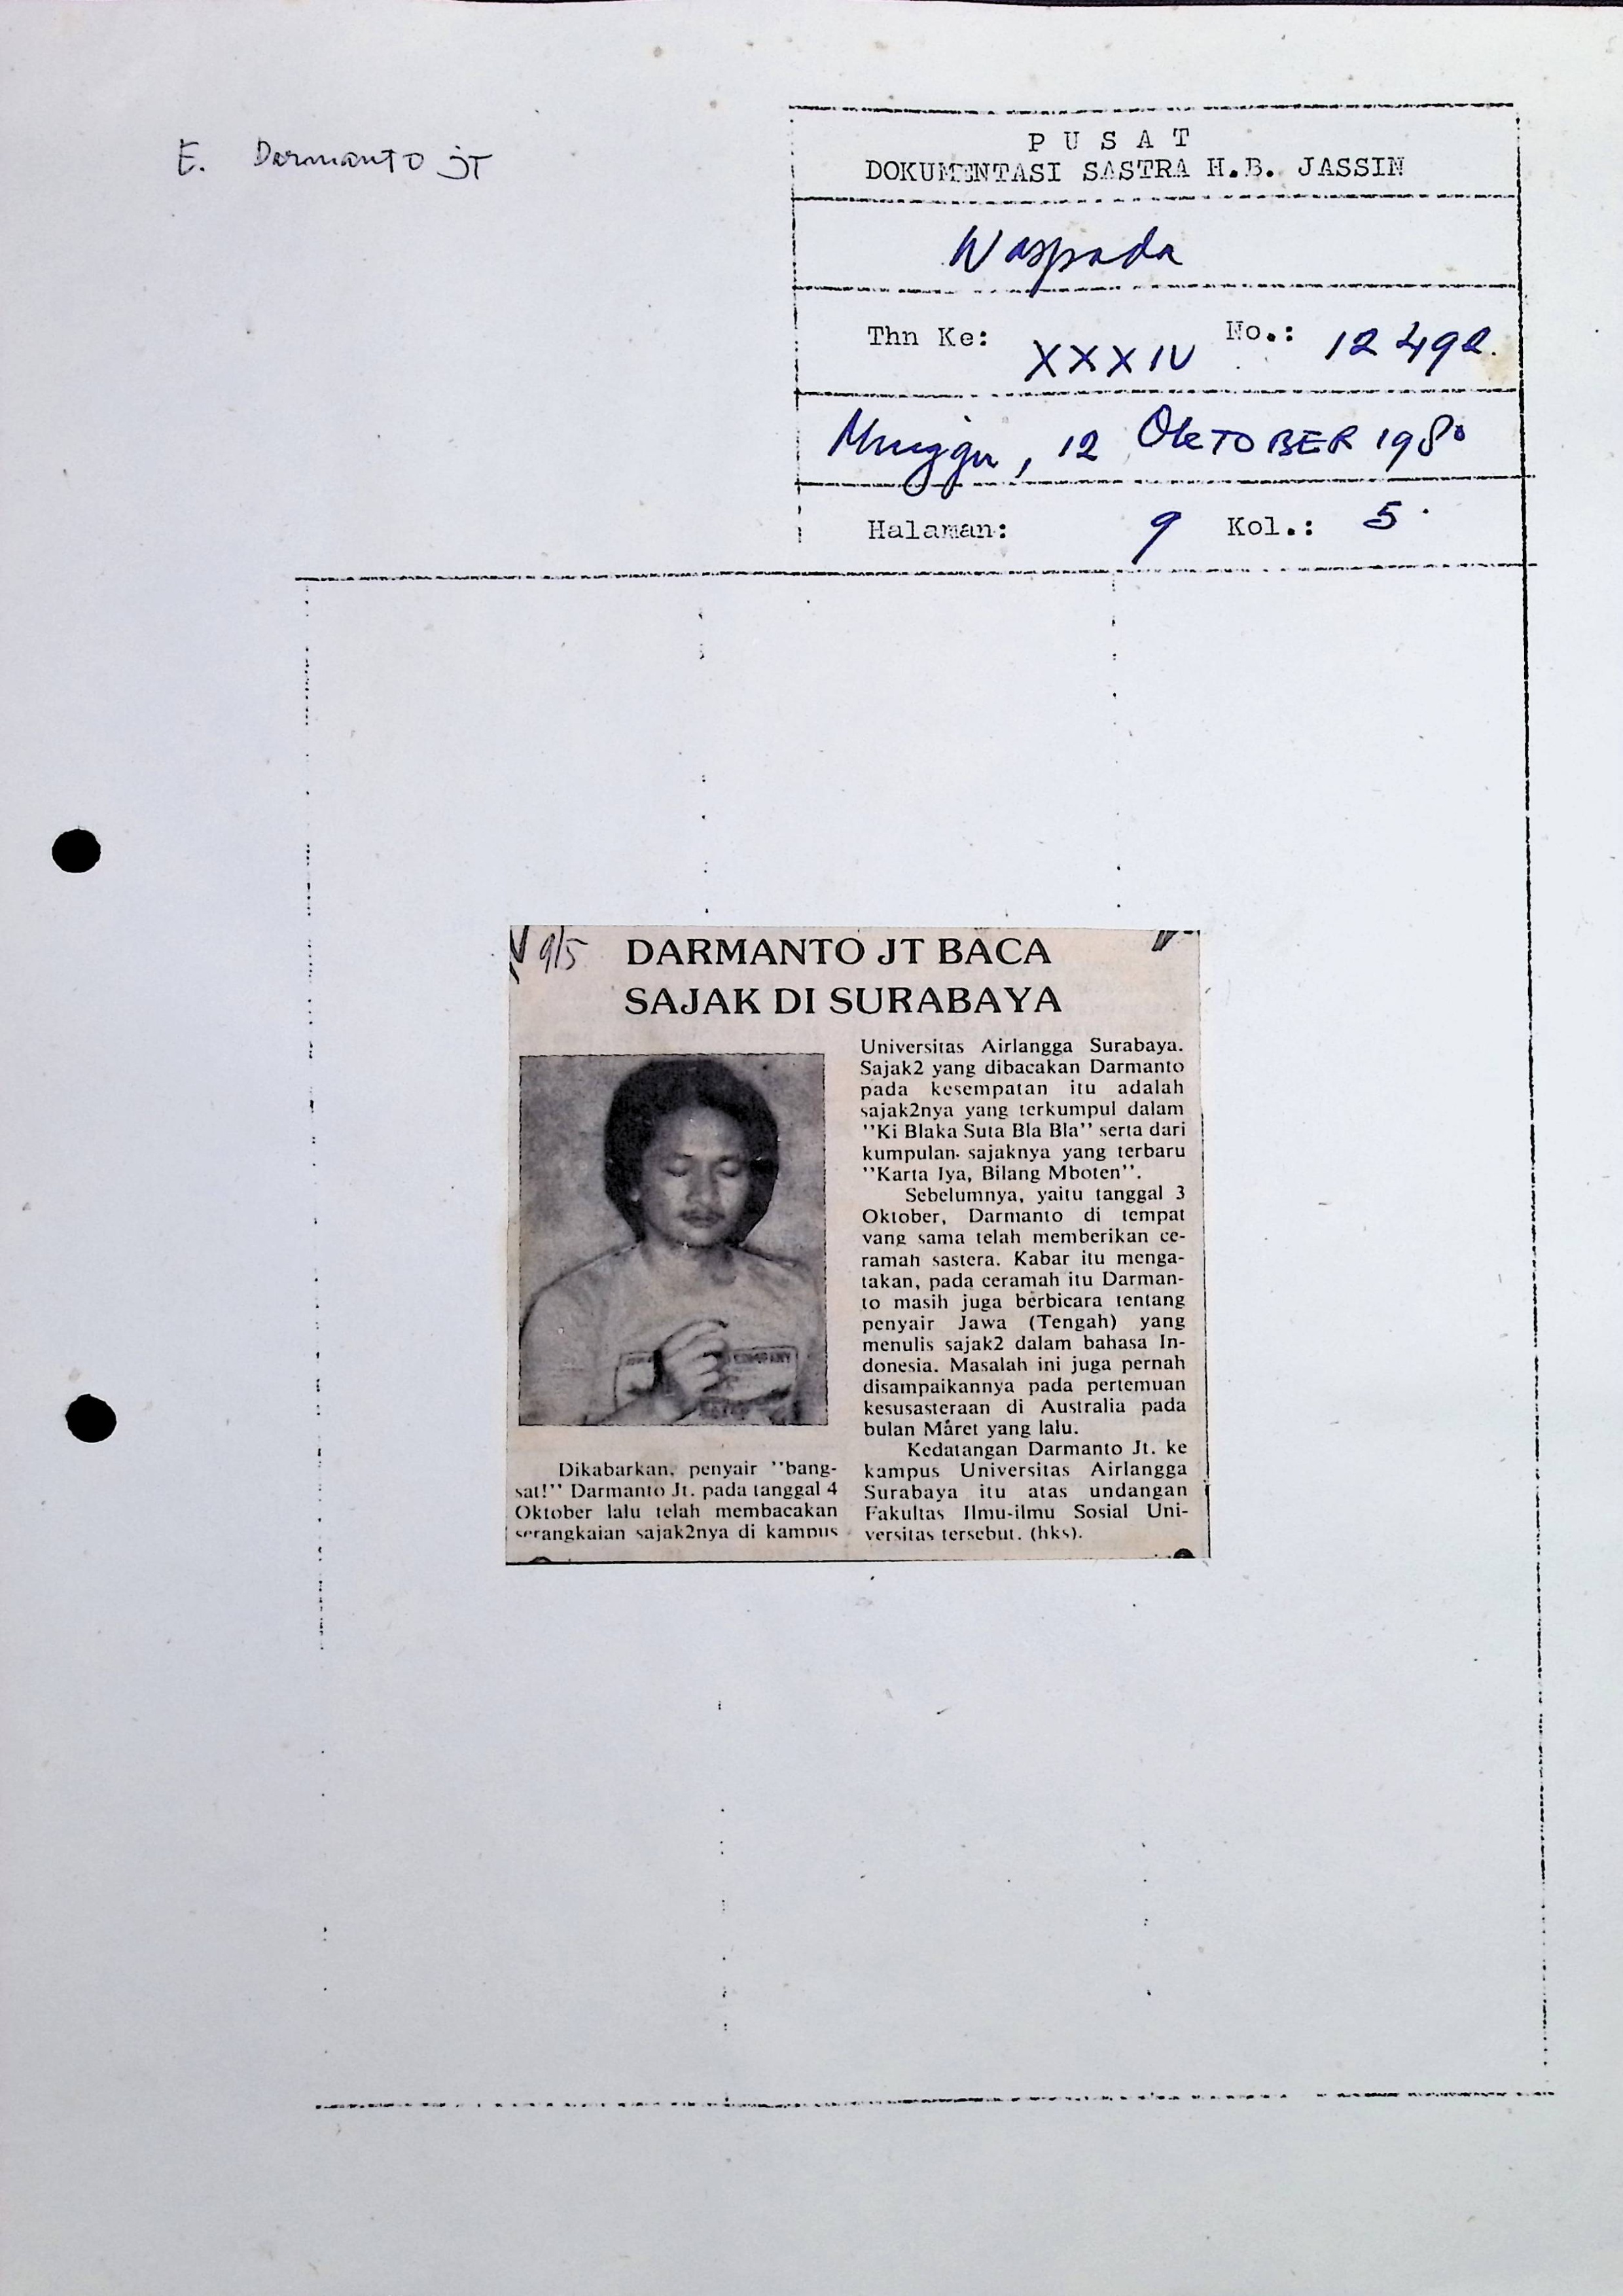 E. Darmanto jT
P U S A T
DOKUMENTASI SASTRA H.B. JASSIN
Waspada
Thn Ke: XXXIV No.: 12 492.
Minggu, 12 OkTOBER 1980
Halaman: 9 Kol.: 5
9/5
DARMANTO JT BACA
SAJAK DI SURABAYA
COMPANY
Dikabarkan, penyair ''bang-
sat!'' Darmanto Jt. pada tanggal 4
Oktober lalu telah membacakan
serangkaian sajak2nya di kampus
Universitas Airlangga Surabaya.
Sajak2 yang dibacakan Darmanto
pada kesempatan itu adalah
sajak2nya yang terkumpul dalam
''Ki Blaka Suta Bla Bla'' serta dari
kumpulan sajaknya yang terbaru
''Karta Iya, Bilang Mboten''.
Sebelumnya, yaitu tanggal 3
Oktober, Darmanto di tempat
yang sama telah memberikan ce-
ramah sastera. Kabar itu menga-
takan, pada ceramah itu Darman-
to masih juga berbicara tentang
penyair Jawa (Tengah) yang
menulis sajak2 dalam bahasa In-
donesia. Masalah ini juga pernah
disampaikannya pada pertemuan
kesusasteraan di Australia pada
bulan Maret yang lalu.
Kedatangan Darmanto Jt. ke
kampus Universitas Airlangga
Surabaya itu atas undangan
Fakultas Ilmu-ilmu Sosial Uni-
versitas tersebut. (hks).